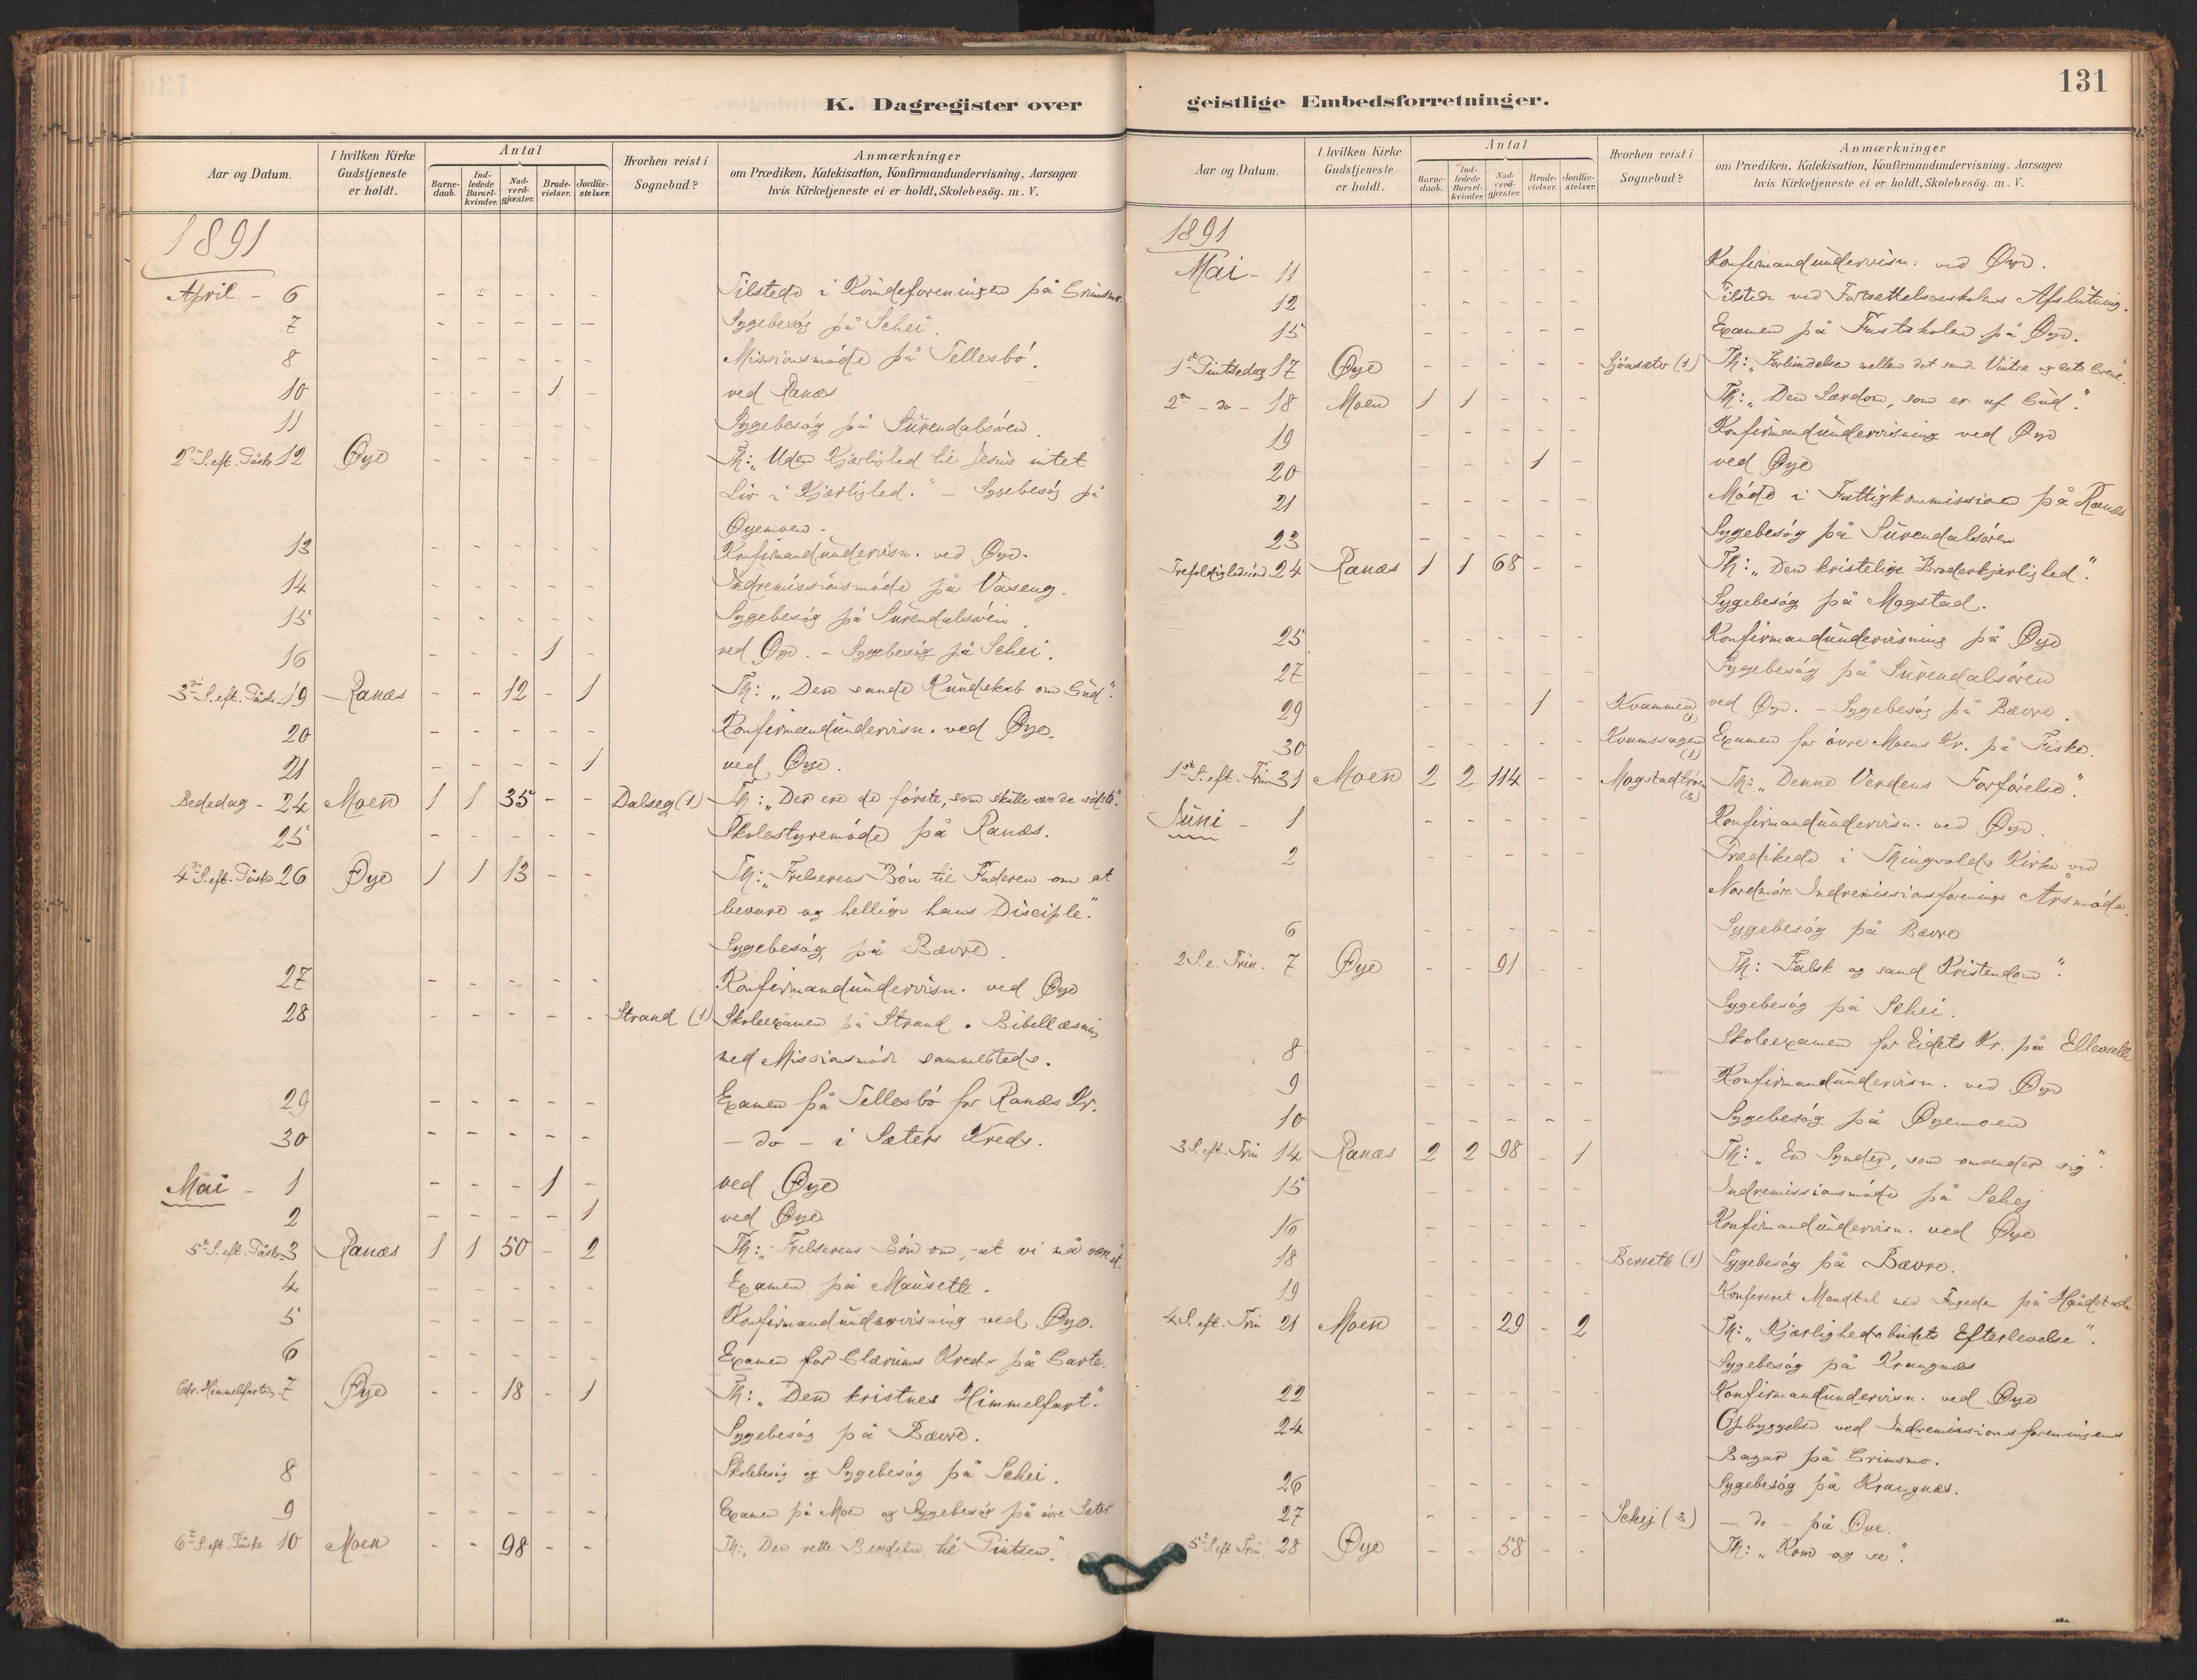 K. Dagregister over
Aar og Datum.
I hvilken Kirke Gudstjeneste er holdt.
Antal
Barne-daab.
Ind-ledede Barsel-kvinder.
Nad-verd-gjæster.
Brude-vielser.
Jordfæ-stelser.
Hvorhen reist i Sognebud?
Anmærkninger
om Prædiken, Katekisation, Konfirmandundervisning, Aarsagen
hvis Kirketjeneste ei er holdt, Skolebesög. m. V.
1891
April - 6 - - - - - Tilstede i Kvindeforeningen på Grimsmo
7 - - - - - Sygebesög på Schei.
8 - - - - - Missionsmöde på Tellesbö.
10 - - - 1 - ved Ranæs
11 - - - - - Sygebesög på Surendalsören.
2den S. eft. Påske 12 Øye - - - - - Th: "Uden Kjærlighed til Jesus intet
Liv i Kjærlighed." - Sygebesög på
Øyemoen.
13 - - - - - Konfirmandundervisn. ved Øye.
14 - - - - - Indremissionsmöde på Våseng.
15 - - - - - Sygebesög på Surendalsören.
16 - - - 1 - ved Øye. - Sygebesög på Schei.
3die S. eft. Påske 19 Ranæs - - 12 - 1 Th: "Den sande Kundskab om Gud".
20 - - - - - Konfirmandundervisn. ved Øye.
21 - - - - 1 ved Øye.
Bededag - 24 Moen 1 1 35 - - Dalseg (1) Th: "Der ere de förste, som skulle være de sidste".
25 - - - - - Skolestyremöde på Ranæs.
4de S. eft. Påske 26 Øye 1 1 13 - - Th: "Frelserens Bön til Faderen om at
bevare og hellige hans Disciple."
Sygebesög på Bævre.
27 - - - - - Konfirmandundervisn. ved Øye
28 - - - - - Strand (1) Skoleexamen på Strand. Bibellæsning
med Missionsmöde sammesteds.
29 - - - - - Examen på Tellesbö for Ranæs Kr.
30 - - - - - - do - i Sæters Kreds.
Mai - 1 - - - 1 - ved Øye
2 - - - - 1 ved Øye
5te S. eft. Påske 3 Ranæs 1 1 50 - 2 Th: "Frelserens Bön om, at vi må være ét.
4 - - - - - Examen på Mausette.
5 - - - - - Konfirmandundervisning ved Øye.
6 - - - - - Examen for Glærums Kreds på Garte.
Chr. Himmelfartsdg. 7 Øye - - 18 - 1 Th: "Den kristnes Himmelfart."
Sygebesög på Bævre.
8 - - - - - Skolebesög og Sygebesög på Schei.
9 - - - - - Examen på Moen og Sygebesög på övre Sæter
6te S. eft. Påske 10 Moen - - 98 - - Th: "Den rette Beredelse til Pintsen".
131
geistlige Embedsforretninger.
Aar og Datum.
I hvilken Kirke Gudstjeneste er holdt.
Antal
Barne-daab.
Ind-ledede Barsel-kvinder.
Nad-verd-gjæster.
Brude-vielser.
Jordfæ-stelser.
Hvorhen reist i Sognebud?
Anmærkninger
om Prædiken, Katekisation, Konfirmandundervisning, Aarsagen
hvis Kirketjeneste ei er holdt, Skolebesög. m. V.
1891
Mai - 11 - - - - - Konfirmandundervisn. ved Øye.
12 - - - - - Tilstede ved Fortsættelsesskolens Afslutning.
15 - - - - - Examen på Fastskolen på Øye.
1ste Pintsedag 17 Øye - - - - - Sjöasæter (1) Th: "Forbindelsen mellem det sande Vintræ og dets Grene".
2den - do - 18 Moen 1 1 - - - Th: "Den Lærdom, som er af Gud".
19 - - - - - Konfirmandundervisning ved Øye
20 - - - 1 - ved Øye
21 - - - - - Möde i Fattigkommissionen på Ranæs
23 - - - - - Sygebesög på Surendalsören
Trefoldighedssönd. 24 Ranæs 1 1 68 - - Th: "Den kristelige Broderkjærlighed".
Sygebesög på Mogstad.
25 - - - - - Konfirmandundervisning på Øye
27 - - - - - Sygebesög på Surendalsören
29 - - - 1 - Kvammen (1) ved Øye. - Sygebesög på Bævre.
30 - - - - - Kvamssagen (1) Examen for övre Moens Kr. på Fiske.
1ste S. eft. Trin 31 Moen 2 2 114 - - Th: "Denne Verdens Forförelse".
Juni - 1 - - - - - Konfirmandundervisn. ved Øye.
2 - - - - - Prædikede i Thingvolds Kirke ved
Nordmöre Indremissionsforenings Årsmöde.
6 - - - - - Sygebesög på Bævre
2 S. e. Trin. 7 Øye - - 91 - - Th: Falsk og sand Kristendom".
Sygebesög på Schei.
8 - - - - - Skoleexamen for Eidets Kr. på
9 - - - - - Konfirmandundervisn. ved Øye
10 - - - - - Sygebesög på Øyemoen
3 S. eft. Trin 14 Ranæs 2 2 98 - 1 Th: "En Synder, som omvender sig".
15 - - - - - Indremissionsmöde på Schej
16 - - - - - Konfirmandundervisn. ved Øye
18 - - - - - Berseth (1) Sygebesög på Bævre.
19 - - - - - Konfereret Mandtal med Fogeden på
4 S. eft. Trin 21 Moen - - 29 - 2 Th: "Kjærlighedsbudets Efterlevelse".
Sygebesög på Krangnæs
22 - - - - - Konfirmandundervisn. ved Øye
24 - - - - - Opbyggelse ved Indremissionsforeningens
Bazar på Grimsmo.
26 - - - - - Sygebesög på Krangnæs.
27 - - - - - Schej (3) - do - på Øye.
5te S. eft Trin 28 Øye - - 58 - - Th: "Kom og se".